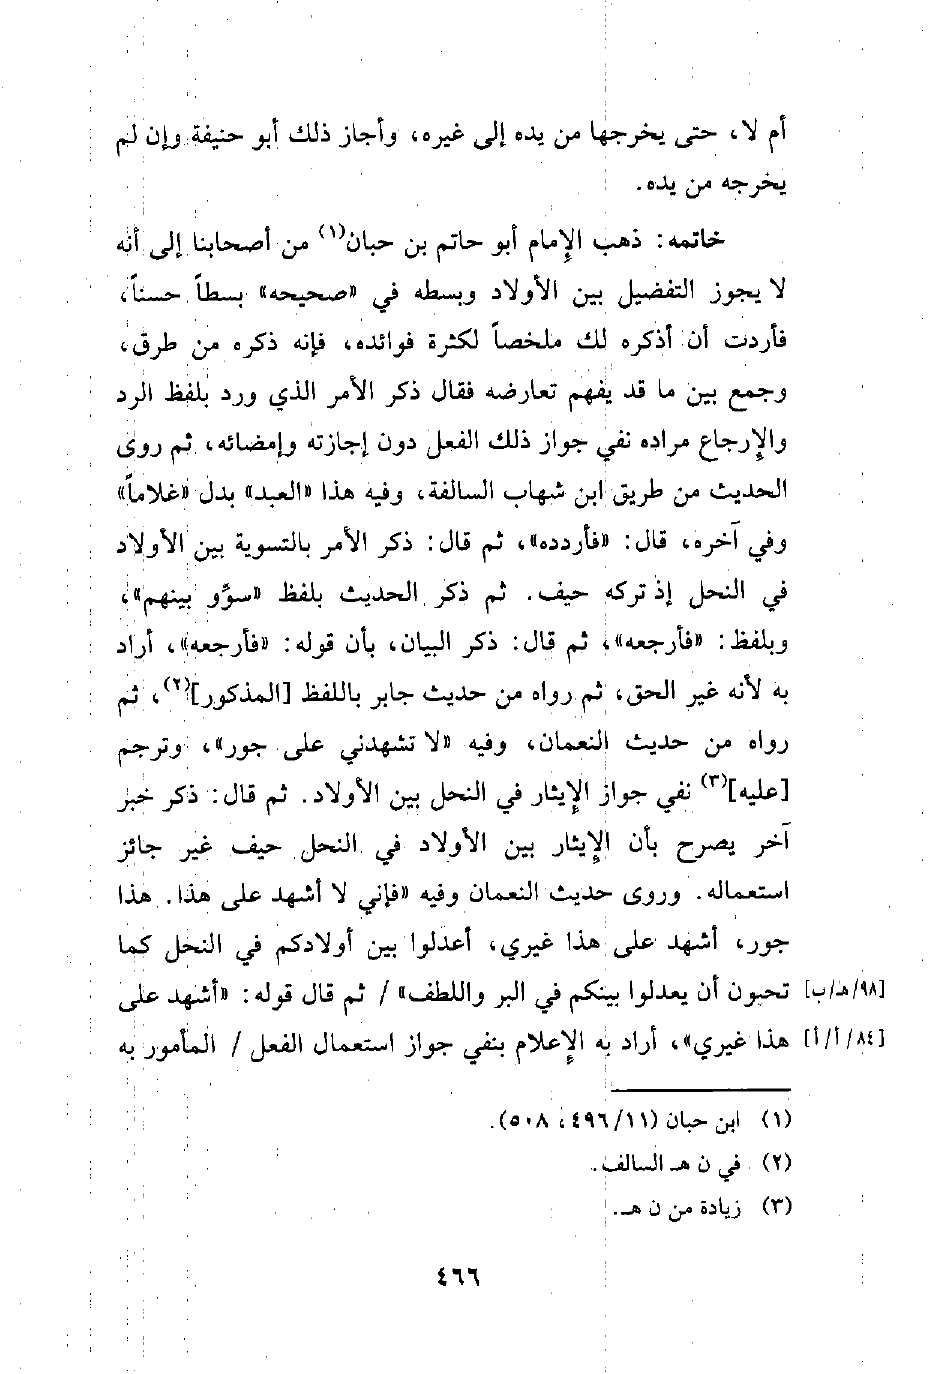 أم لا، حتى يخرجها من يده إلى غيره، وأجاز ذلك أبو حنيفة وإن لم
يخرجه من يده.
خاتمه: ذهب الإمام أبو حاتم بن حبان(١) من أصحابنا إلى أنه
لا يجوز التفضيل بين الأولاد وبسطه في «صحيحه» بسطاً حسناً،
فأردت أن أذكره لك ملخصاً لكثرة فوائده، فإنه ذكره من طرق،
وجمع بين ما قد يفهم تعارضه فقال ذكر الأمر الذي ورد بلفظ الرد
والإرجاع مراده نفي جواز ذلك الفعل دون إجازته وإمضائه، ثم روى
الحديث من طريق ابن شهاب السالفة، وفيه هذا «العبد» بدل «غلاماً»
وفي آخره، قال: «فأردده»، ثم قال: ذكر الأمر بالتسوية بين الأولاد
في النحل إذ تركه حيف. ثم ذكر الحديث بلفظ «سوُّو بينهم»،
وبلفظ: «فأرجعه»، ثم قال: ذكر البيان، بأن قوله: «فأرجعه»، أراد
به لأنه غير الحق، ثم رواه من حديث جابر باللفظ [المذكور](٢)، ثم
رواه من حديث النعمان، وفيه «لا تشهدني على جور»، وترجم
[عليه](٣) نفي جواز الإيثار في النحل بين الأولاد. ثم قال: ذكر خبر
آخر يصرح بأن الإيثار بين الأولاد في النحل حيف غير جائز
استعماله. وروى حديث النعمان وفيه «فإني لا أشهد على هذا. هذا
جور، أشهد على هذا غيري، أعدلوا بين أولادكم في النحل كما
[٩٨/هـ/ب] تحبون أن يعدلوا بينكم في البر واللطف» / ثم قال قوله: «أشهد على
[٨٤/أ/أ] هذا غيري»، أراد به الإعلام بنفي جواز استعمال الفعل / المأمور به
(١) ابن حبان (٤٩٦/١١، ٥٠٨).
(٢) في ن هـ السالف.
(٣) زيادة من ن هـ.
٤٦٦